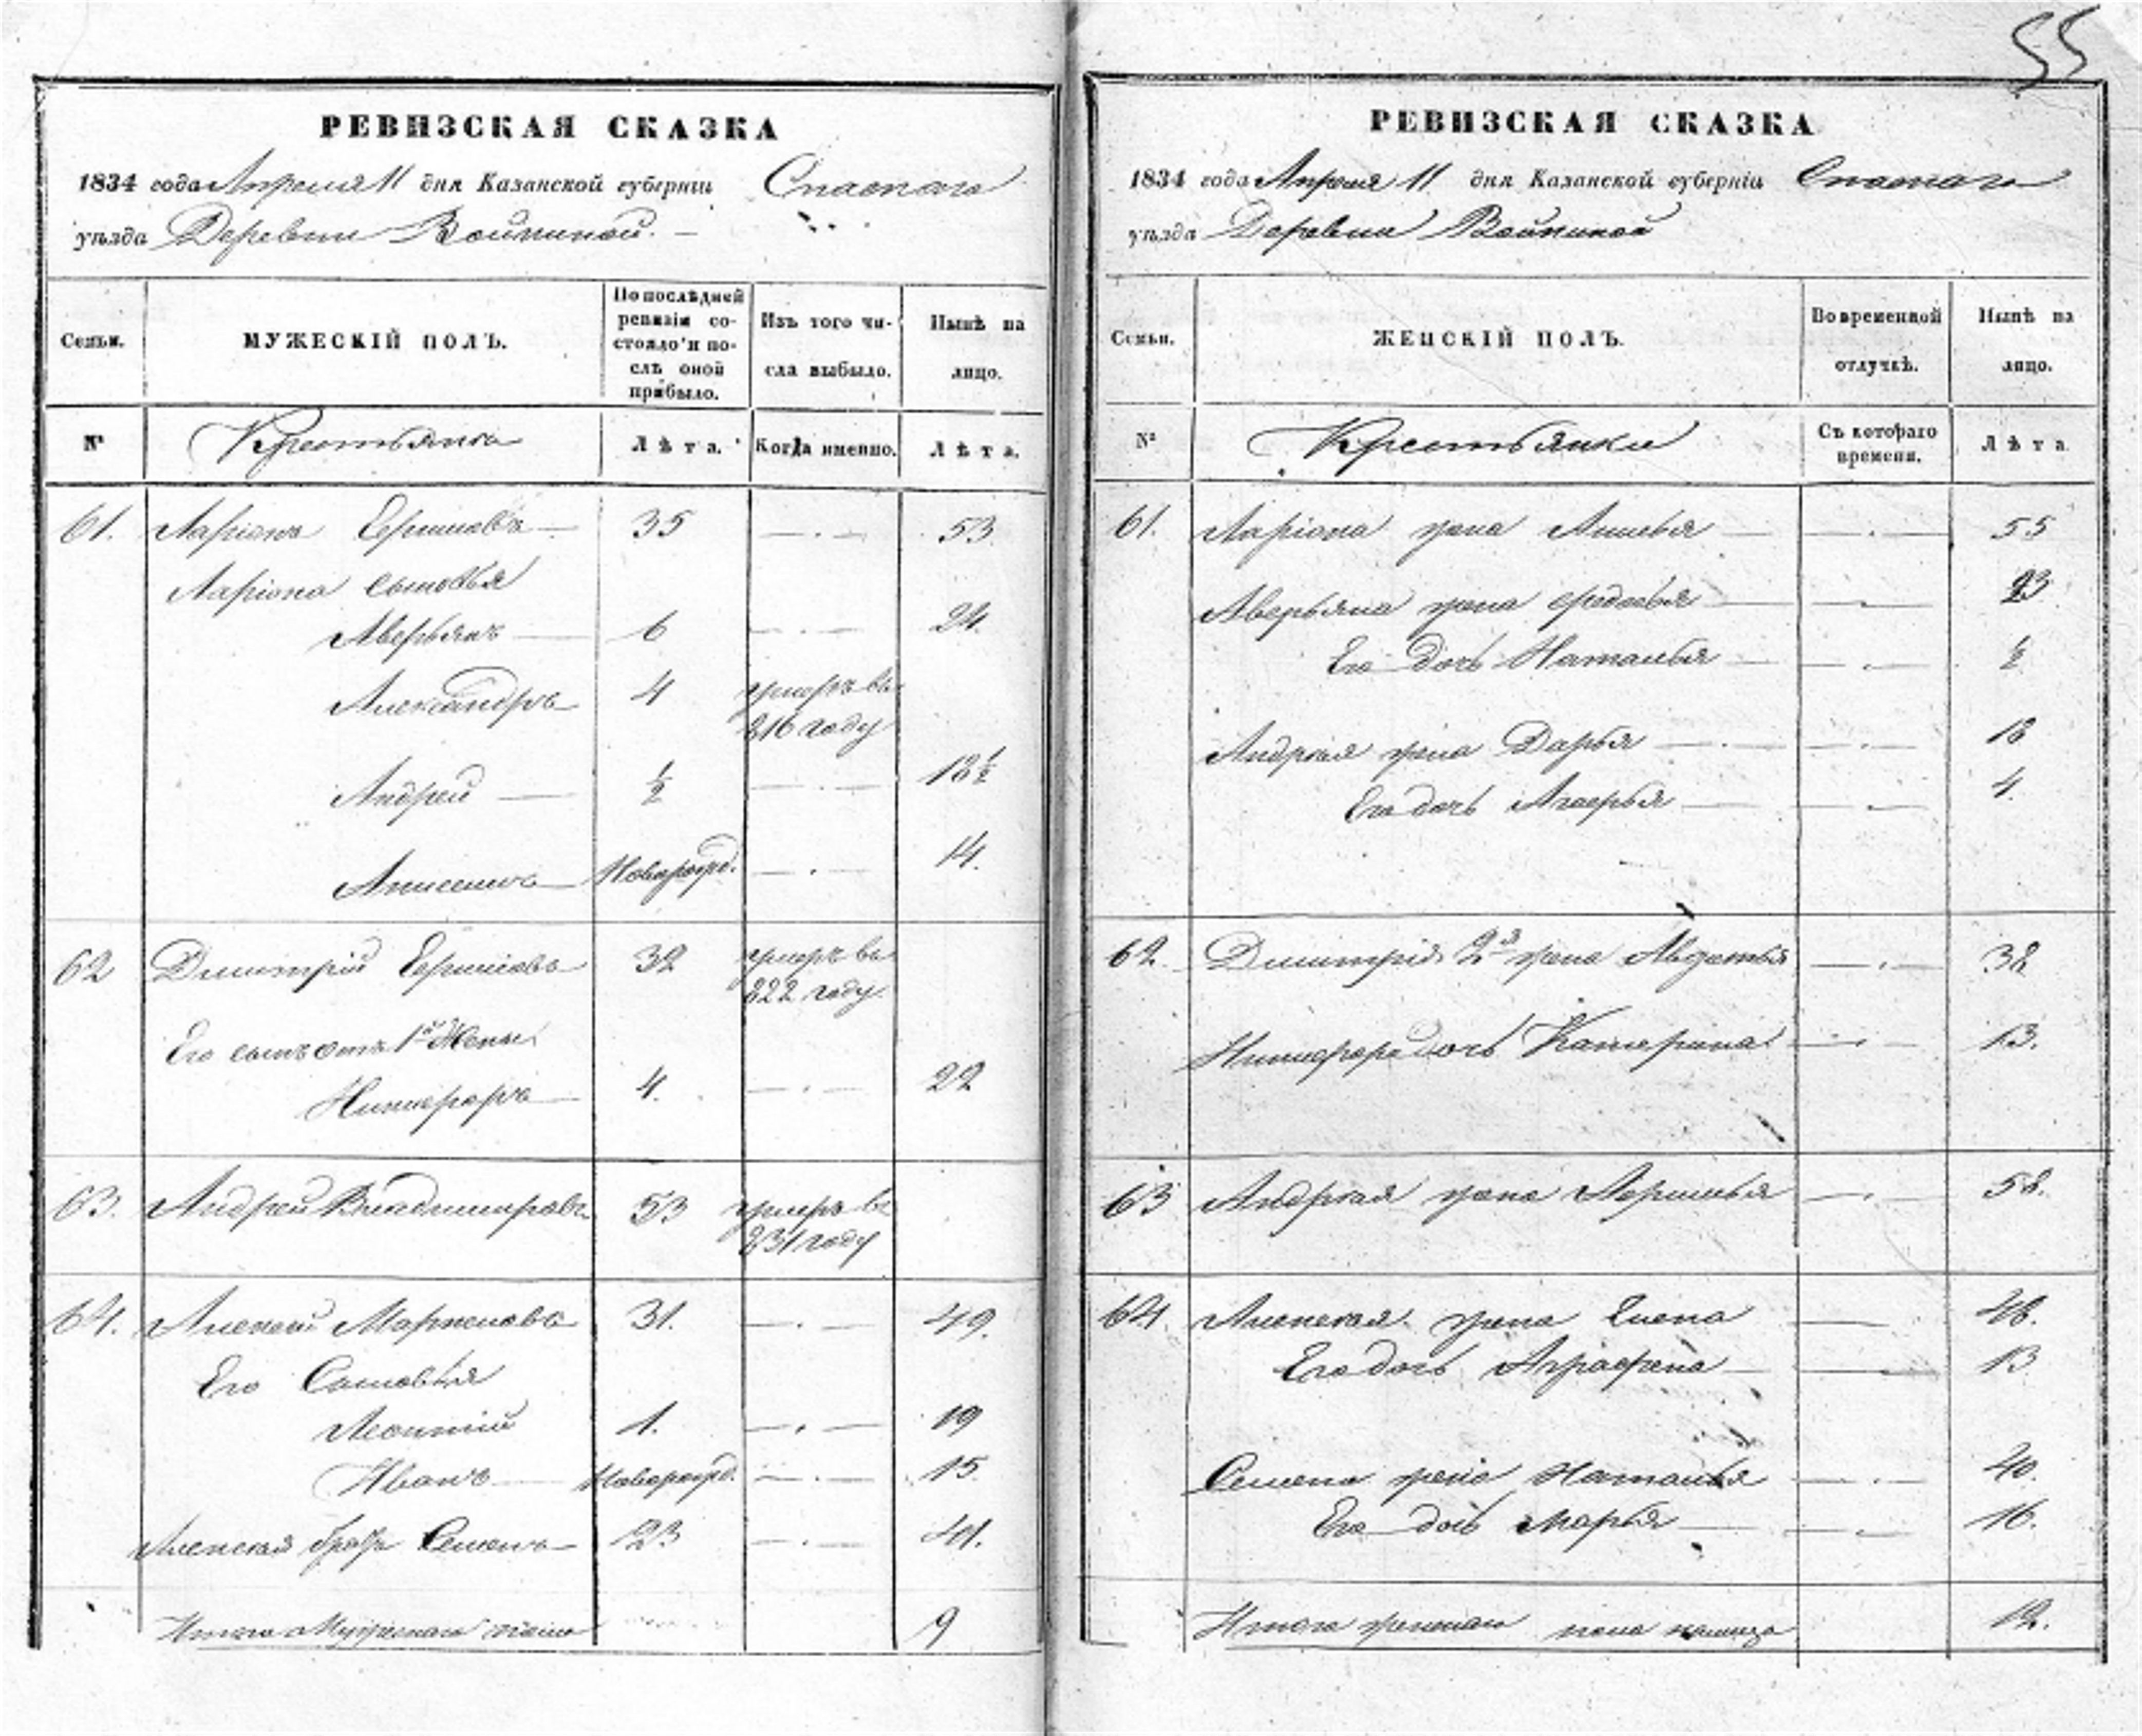 55
РЕВИЗСКАЯ СКАЗКА
1834 года Апреля 11 дня Казанской губерніи Спаскаго
уѣзда Деревни Войкиной.
Семьи.
МУЖЕСКІЙ ПОЛЪ.
По послѣдней ревизіи со-
стояло и по-
слѣ оной
прибыло.
Изъ того чи-
сла выбыло.
Нынѣ на
лицо.
№
Крестьяна
Лѣта.
Когда именно.
Лѣта.
61. Ларіонъ 35 53
Ларіона сыновья
Аверьянъ 6 24.
Александръ 4 умеръ въ
816 году
Андрей ½ 18½
Анисимъ Новорожд. 14.
62 Димитрій 32 умеръ въ
822 году
Его сынъ отъ 1й Жены
Никифоръ 4. 22
63. Андрей Владимировъ 53 умеръ въ
831 году
64. Алексей 31. 49.
Его Сыновья
Леонтій 1. 19
Иванъ Новорожд. 15.
Алексея братъ Семенъ 23 41.
Итого Мужескаго пола 9
РЕВИЗСКАЯ СКАЗКА
1834 года Апреля 11 дня Казанской губерніи Спаскаго
уѣзда Деревни Войкиной
Семьи.
ЖЕНСКІЙ ПОЛЪ.
Во временной
отлучкѣ.
Нынѣ на
лицо.
№
Крестьянки
Съ котораго
времени.
Лѣта
61. Ларіона жена 55
Аверьяна жена 23
Его дочь Наталья ½
Андрея жена Дарья 18
Его дочь 4.
62. Димитрія 2я жена Авдотья 38
Никифора дочь Катерина 13.
63 Андрея жена 58.
64. Алексея жена Елена 48.
Его дочь Аграфена 13
Семена жена Наталья 40.
Его дочь Марья 16.
Итого женскаго пола налицо 12.